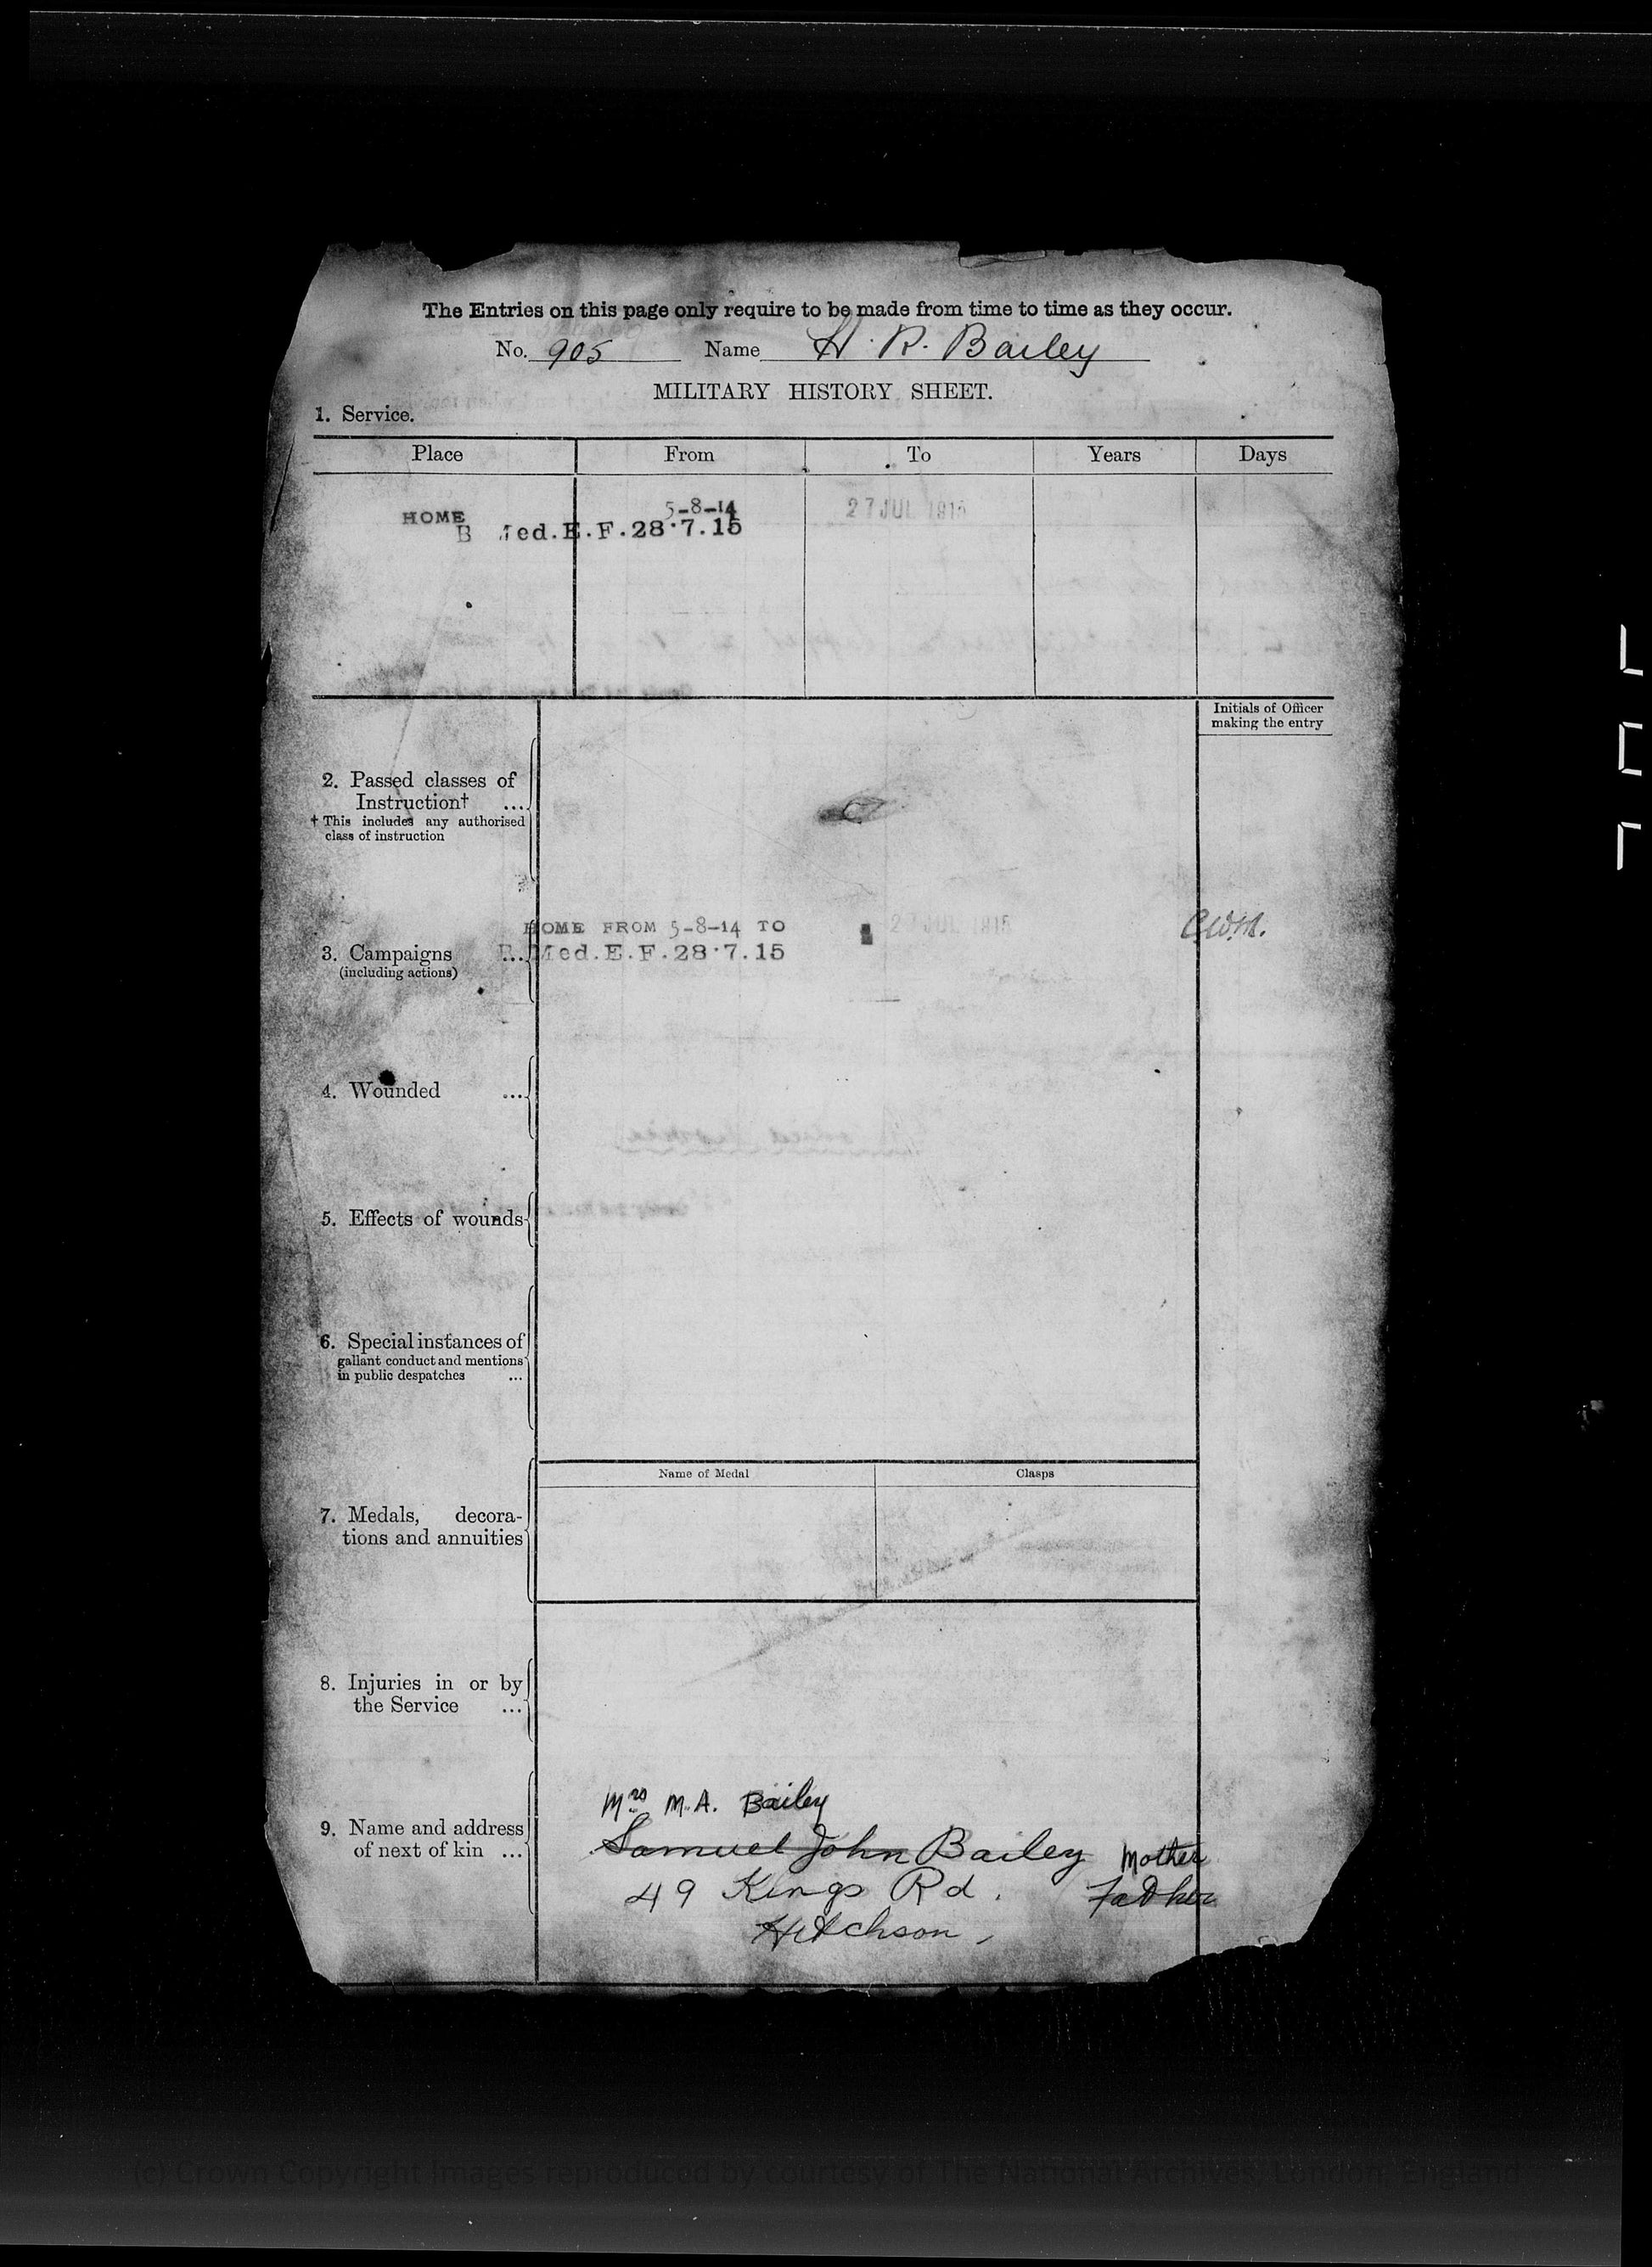 The Entries on this page only require to be made from time to time as they occur.
No. 905 Name H. R. Bailey
MILITARY HISTORY SHEET.
1. Service.
Place From To Years Days
HOME 5-8-14 27 JUL 1915
Med.E.F.28.7.15
Initials of Officer
making the entry
2. Passed classes of
Instruction† ...
† This includes any authorised
class of instruction
HOME FROM 5-8-14 TO 27 JUL 1915 C.W.M.
3. Campaigns ... Med.E.F.28.7.15
(including actions)
4. Wounded ...
5. Effects of wounds
6. Special instances of
gallant conduct and mentions
in public despatches ...
Name of Medal Clasps
7. Medals, decora-
tions and annuities
8. Injuries in or by
the Service ...
Mrs M.A. Bailey
9. Name and address
of next of kin ...
Samuel John Bailey Mother
49 Kings Rd. Father
Hitchson
(c) Crown Copyright Images reproduced by courtesy of The National Archives, London, England